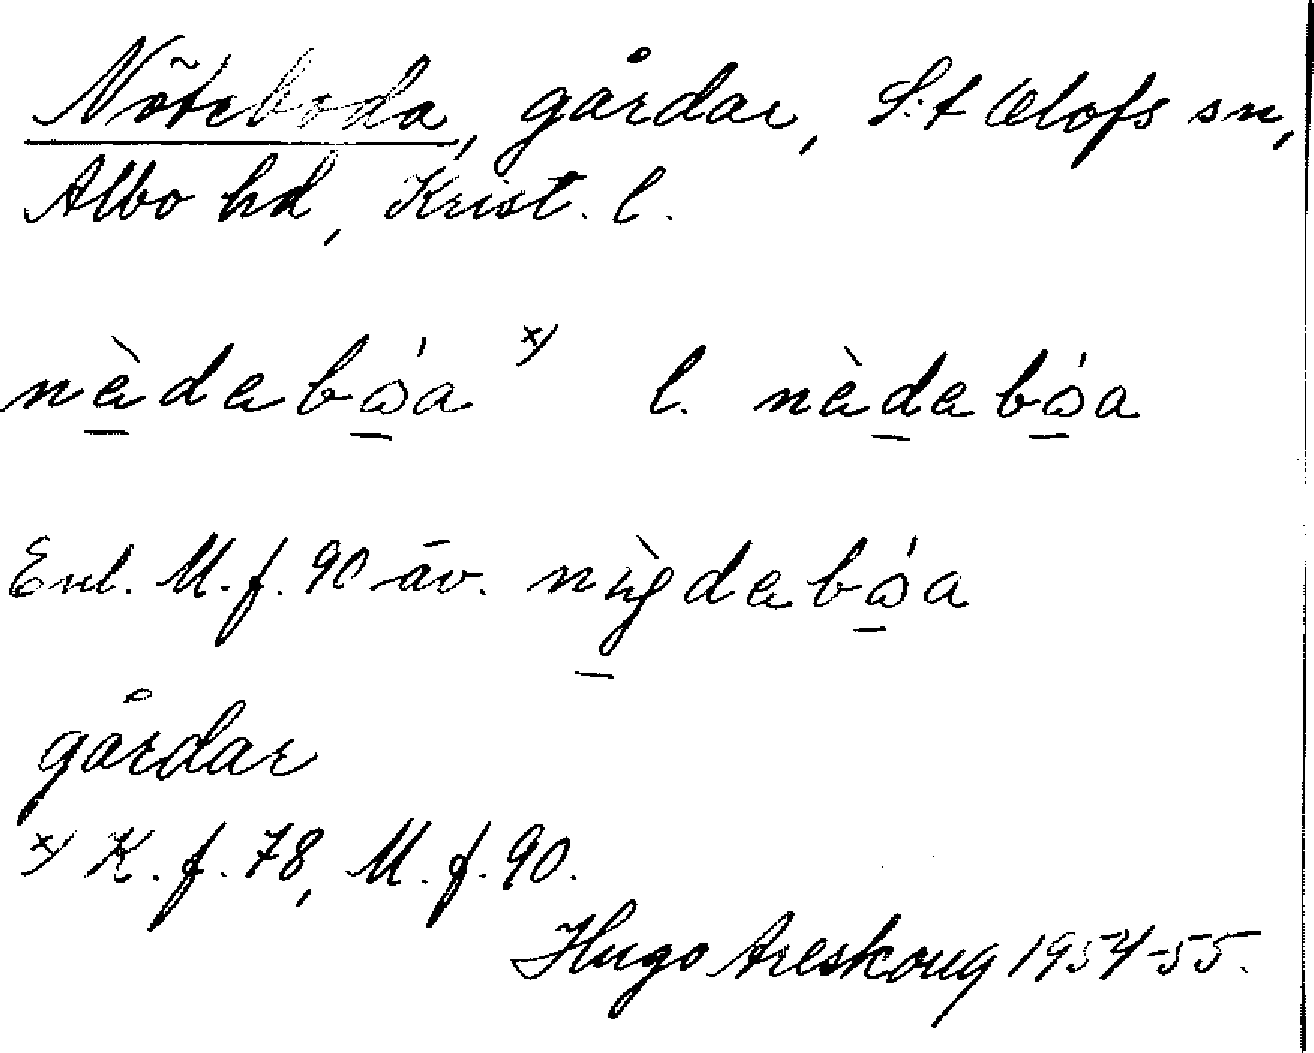 Nöteboda, gårdar, S:t Olofs sn,
Albo hd, Krist. l.
nèdabósa x) l. nèdabósa
Enl. M. f. 90 äv. nìgdabósa
gårdar
x) K. f. 78, M. f. 90.
Hugo Areskoug 1954-55.